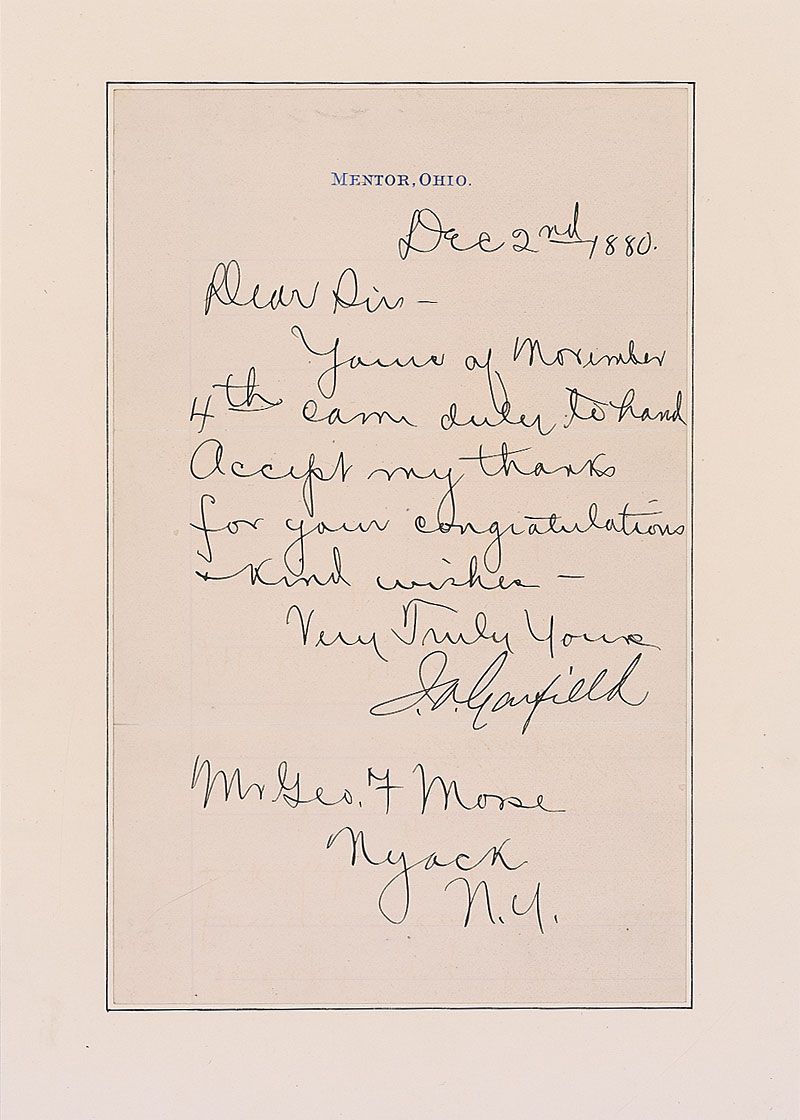 MENTOR, OHIO.
Dec 2nd, 1880.
Dear Sir -
Yours of November
4th came duly to hand
Accept my thanks
for your congratulations
& kind wishes -
Very Truly Yours
J.A. Garfield
Mr Geo. F Morse
Nyack
N.Y.